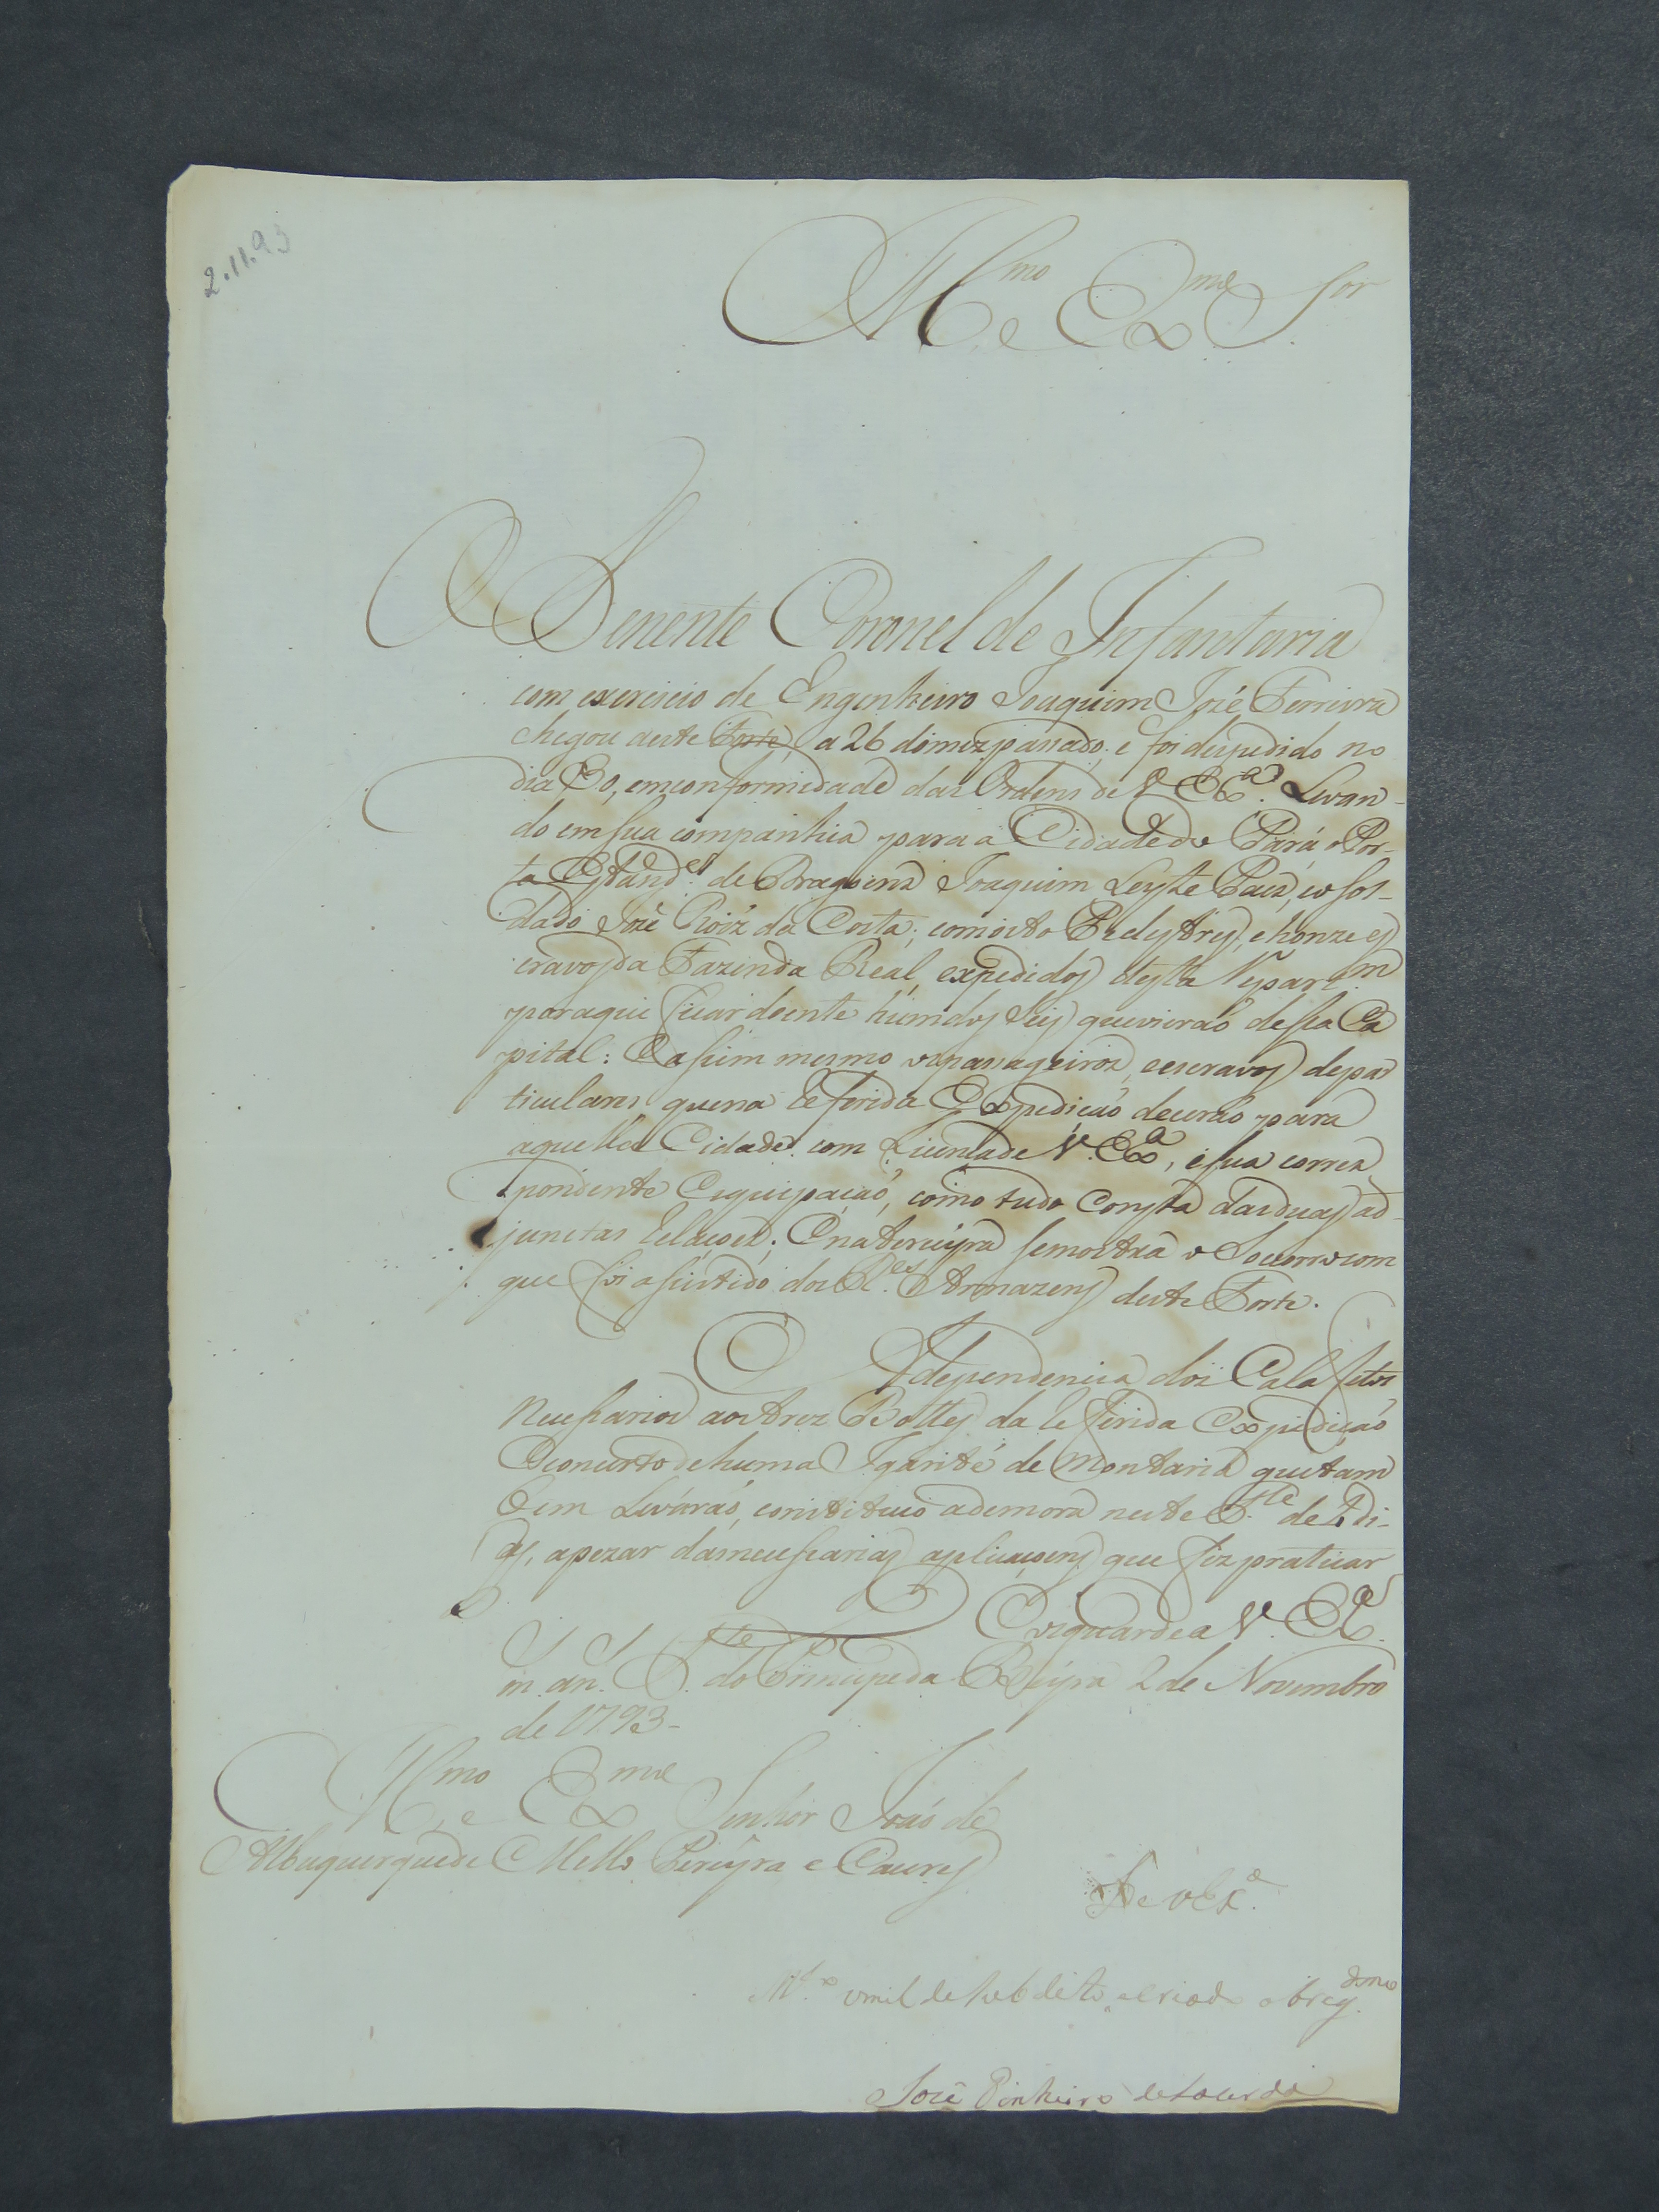 2.11.93
Ill.mo e Ex.mo S.or
O Tenente Coronel de Infantaria
com exercicio de Engenheiro Joaquim Jozé Ferreira
chegou aeste Forte, a 26 domez passado, e foi despedido no
dia 30, emconformidade das Ordens de V. Ex.a Levan-
do emsua companhia para a Cidade do Pará o Por-
ta Estand.e de Dragoens Joaquim Leyte Paez, e o sol-
dado Jozé Roiz da Costa; comoito Pedestres, e honze es
cravos da Fazenda Real, expedidos desta Repart.m
poraqui ficar doente hum dos Seis que vieraõ dessa Ca
pital: E assim mesmo os passageiros, e escravos depar
ticulares que na referida Expediçaõ deceraõ para
aquella Cidade com Licença de V. Ex.a, e sua corres
pondente Equipaçaõ, como tudo Consta das duas ad-
junctas relaçoes; E na terceyra semostra o Socorro com
que foi asistido dos R.es Armazens deste Forte.
A dependencia dos Calafetos
necessarios aos tres Bottes da referida Expediçaõ
E concerto de huma Igarité de Montaria que tam
bem Levaraõ, constituio ademora neste F.te de 4 di-
as, apezar das necessarias aplicaçoens que fiz praticar
D.s guarde a V. Ex.a
m. an. F.te do Principe da Beyra 2 de Novembro
de 1793-
Ill.mo e Ex.mo Senhor Joaõ de
Albuquerque de Mello Pereyra e Caceres
De V Ex.a
M.to umil de subdito, e criado obrig.dmo
Jozé Pinheiro de Lacerda